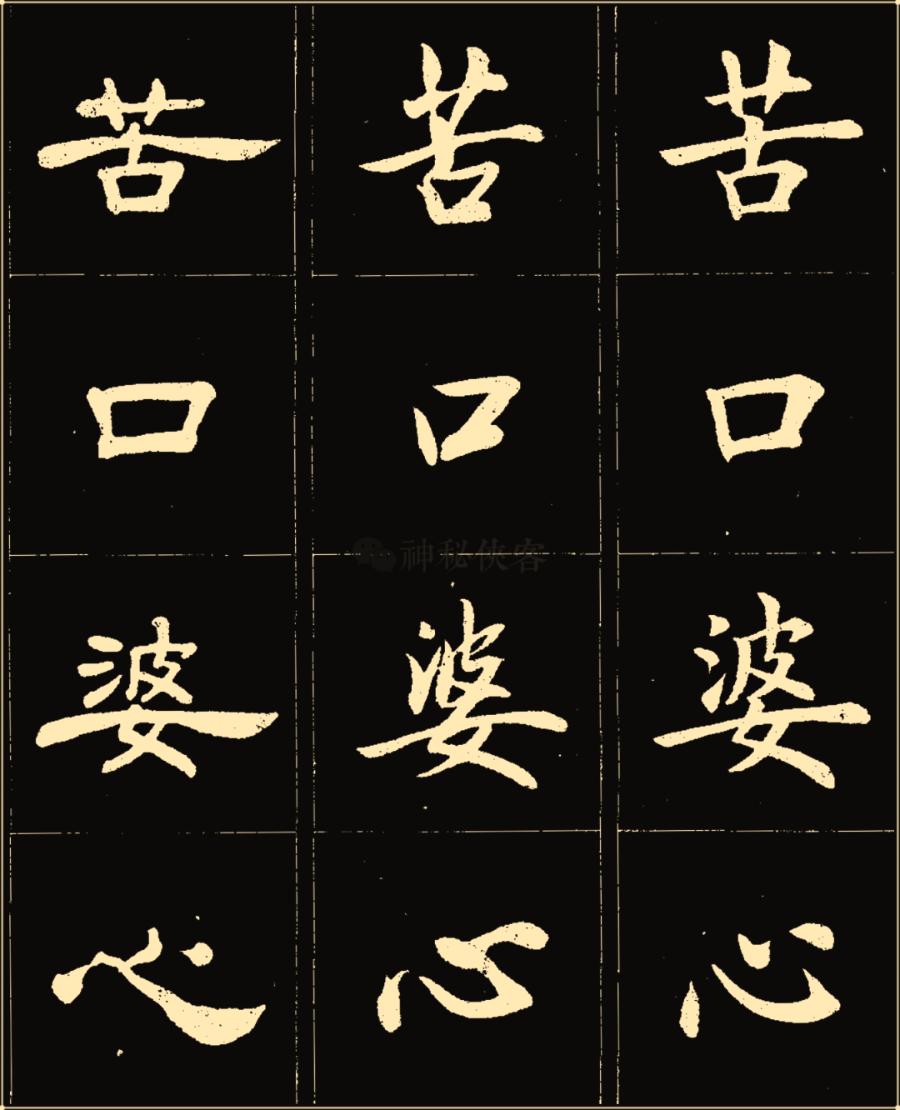 苦口婆心
苦口婆心
苦口婆心
神秘侠客